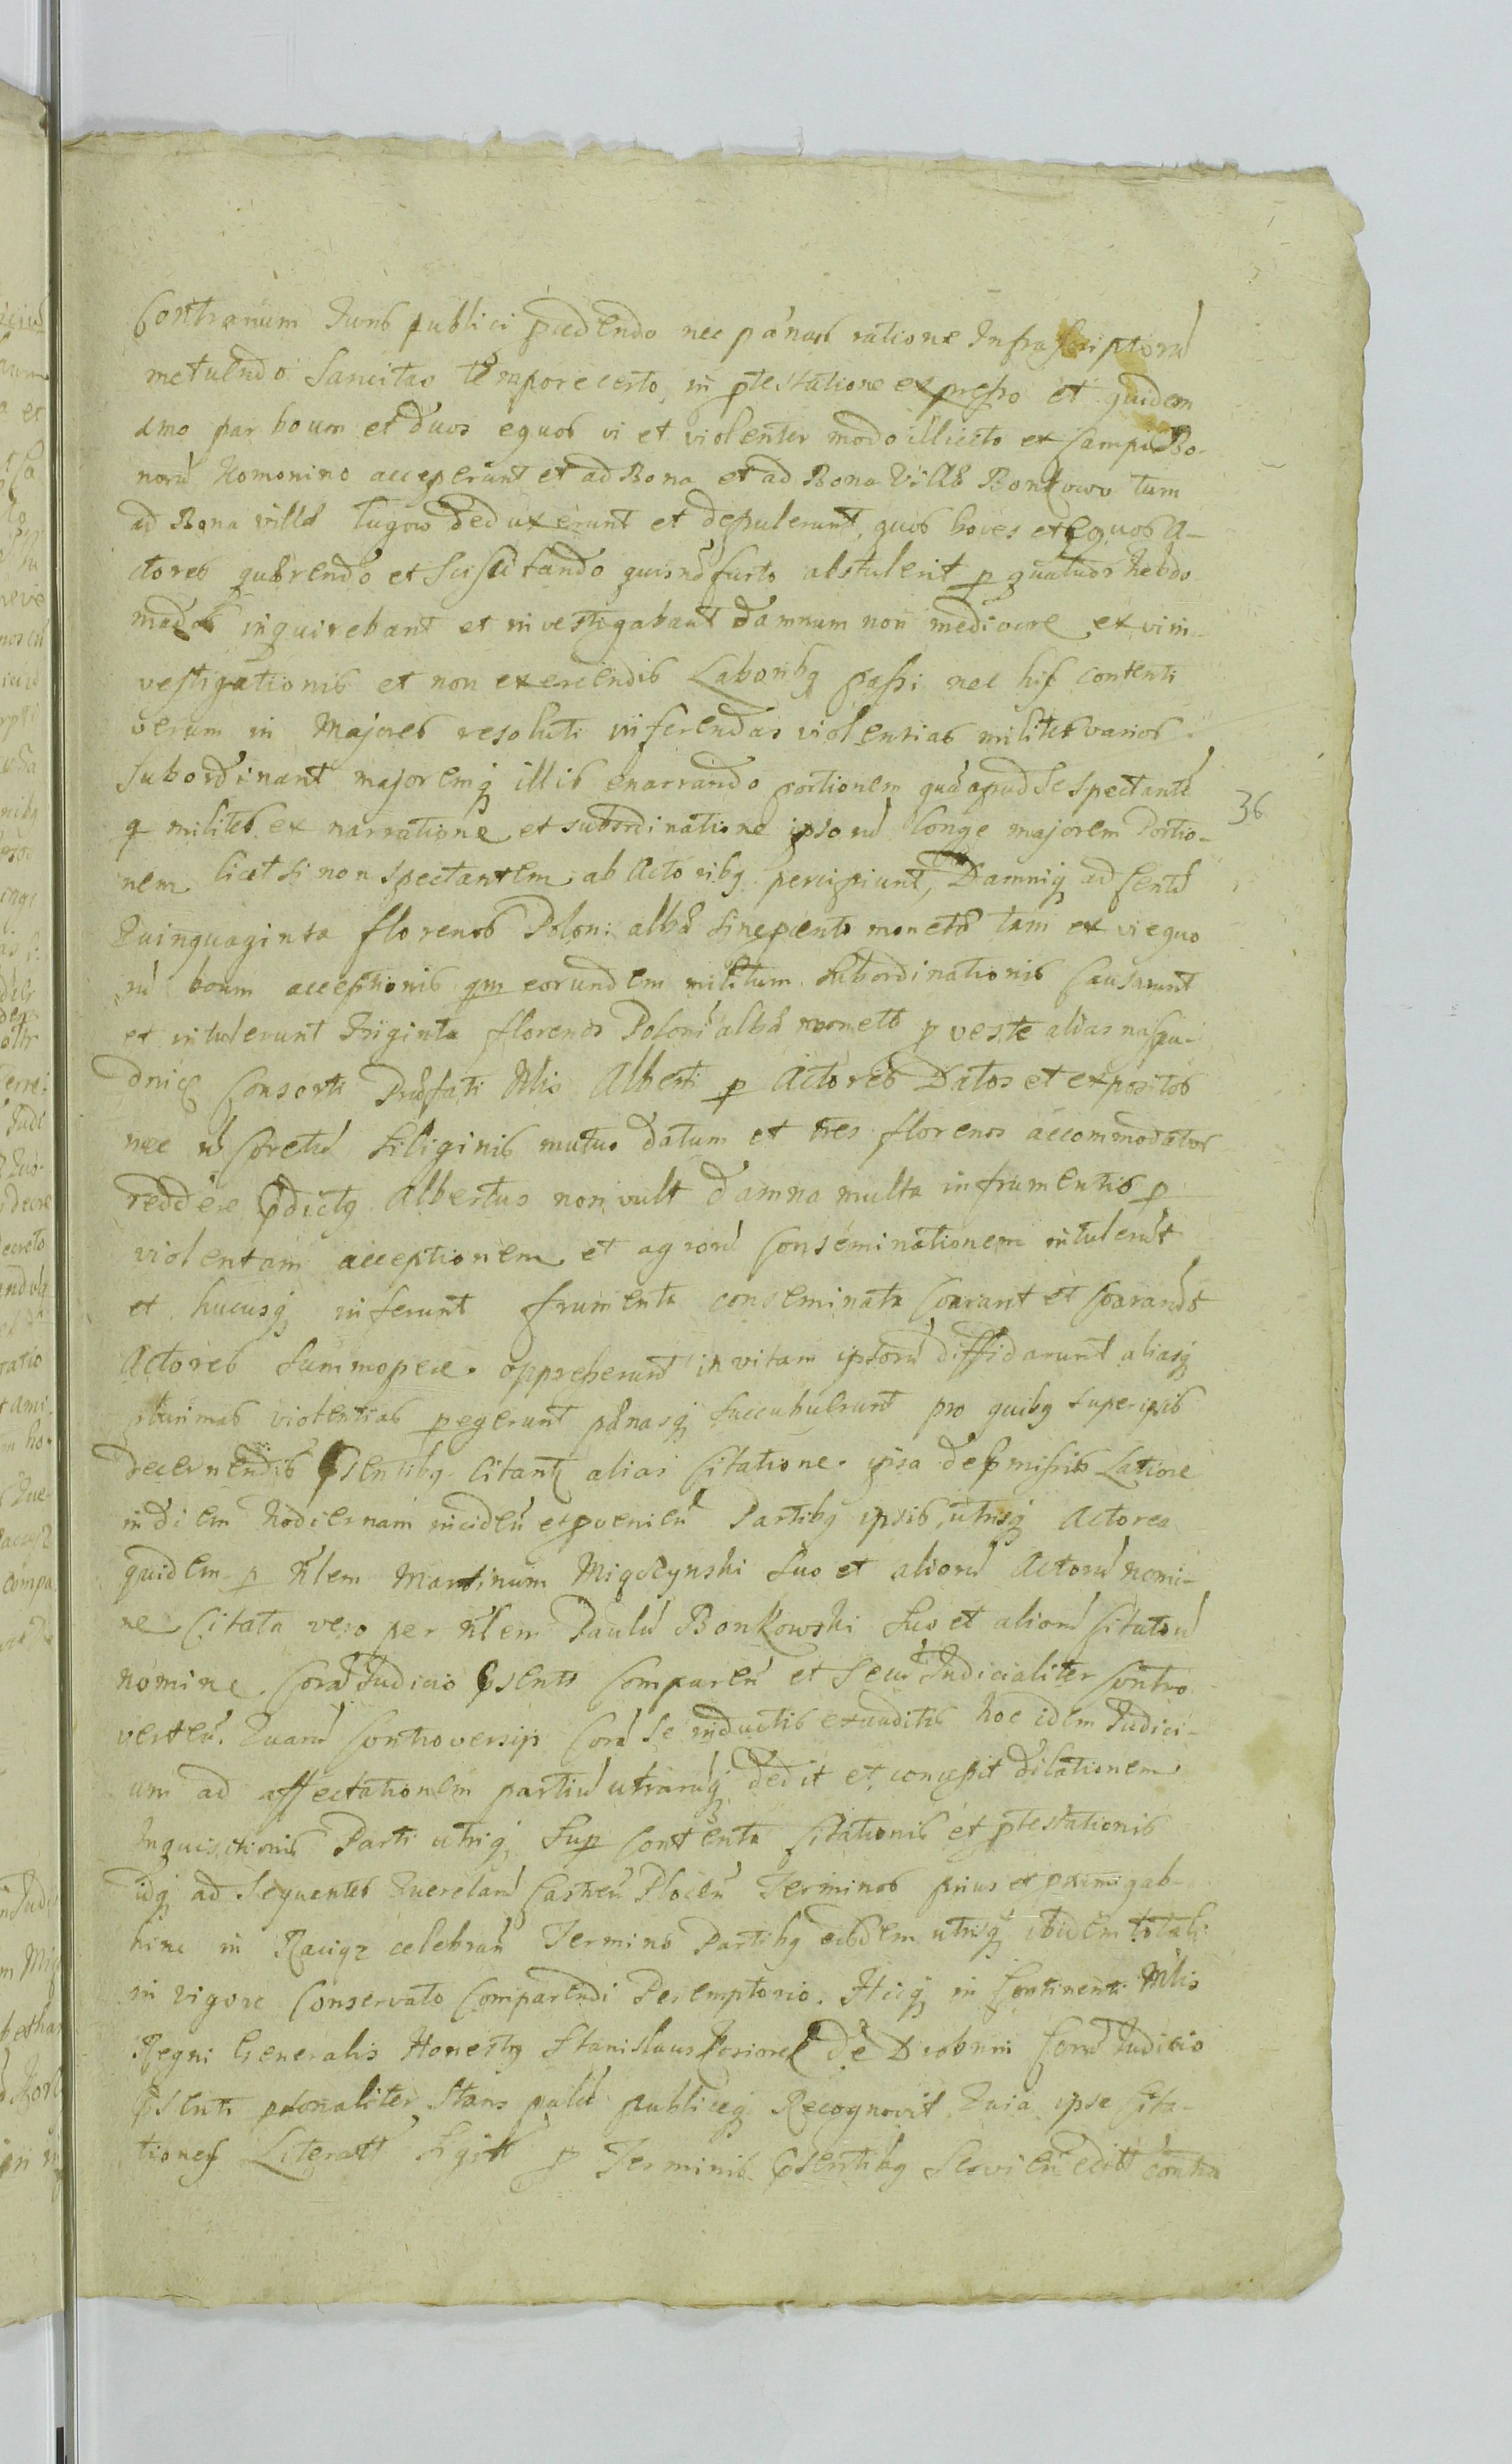 Contrarium Juris publici prædendo nec pænas ratione Infrascriptorũ
metuendo Sancitas tempore certo in ptestatione expresso et quidem
1mo par boum et duos equos vi et violenter modo illicito ex Campis Bo-
norũ Komonino acceperunt et ad Bona et ad Bona Villæ Bonkowo tum
ad Bona villæ Lugowo deduxerunt et depulerunt, quos boves et equos A-
ctores quærendo et Sciscitando quisnã furto abstulerit p quatuor hebdo
madas inquirebant et investigabant damnum non mediocre ex vi in-
vestigationis et non exercendis Laboribq passi nec his contenti
verum in Majores resoluti inferendas violentias milites varios
Subordinant majoremq illis enarrando portionem quã apud Se spectantẽ
q milites ex narratione et subordinatione ipsorũ longe majorem Portio-
nem licet si non spectantem ab Actoribq percipiunt, Damniq ad Centũ
Quinquaginta florenos Polon: albæ sine pcento monetæ tam ex vi equo
rũ boum acceptionis qm eorundem militum Subordinationis Causarunt
et intulerunt Triginta florenos Poloni albæ monetæ p veste alias na suk-
dnice Consorti Præfati Nlis Alberti p Actores Datos et expositos
nec ñ Coretũ Siliginis mutuo datum et tres florenos accommodatos
reddere pdictq Albertus non vult damna multa in frumentis p
violentam acceptionem et agrorũ Conseminationem intulerũt
et hucusq inferunt frumenta conseminata
Actores Summopere oppresserunt in vitam ipsorũ diffidarunt aliasq
plurimas violentias pegerunt pænasq Succubuerunt pro quibq Superipsis
decernendis psentibq Citantq alias Citatione ipsa de pmissis Latiore
in diem hodiernam inciden̄ et pvenien̄ Partibq ipsis, utrisq Actorea
quidem p Nlem Martinum Migszynski Suo et aliorũ Actorũ nomi-
ne Citata vero per Nlem Paulũ Bonkowski Suo et aliorũ Citatorũ
nomine Corã Judicio psenti Comparen̄ et Secũ Judicialiter Contro
verten̄. Quarũ Controversijs Corã Se inductis exauditis hoc idem Judici-
um ad affectationem partiũ utrarũq dedit et concessit dilationem
Inquisitionis Parti utriq Sup Contenta Citationis et ptestationis
idq ad Sequentes Querelarũ Castren̄ Plocen̄ Terminos prius et pximiq ab-
hinc in Raciąz celebran̄ Termino Partibq eisdem utrisq ibidem totali
in vigore Conservato Comparendi Peremptorio. Hicq in Continenti Mlis
Regni Generalis Honestq Stanislaus de Drobnin Corã Judicio
psenti psonaliter Stans palã publiceq Recognovit Quia ipse Cita-
tiones Literatt Sigitt p Terminis psentibq Servien̄ editt contra
36